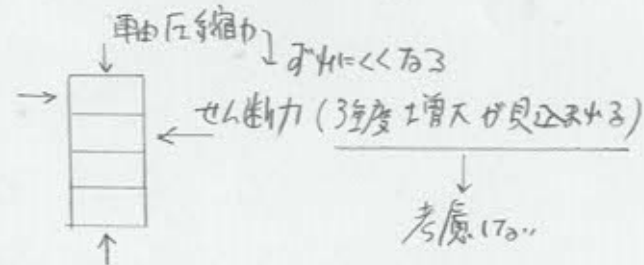 軸圧縮力
ずれにくくなる
せん断力（強度増大が見込まれる）
考慮しない